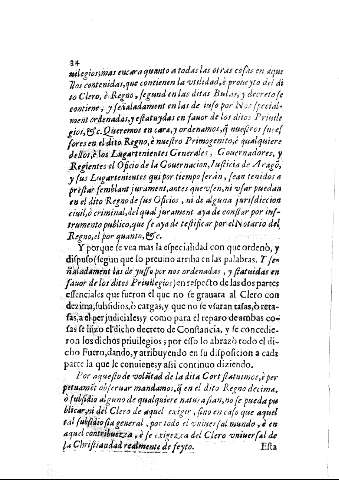 24
uilegios; mas encara quanto a todas las otras cosas en aque
llos contenidas, que contienen la vtilidad, è prouecto del di
to Clero, è Regno, segund en las ditas Bulas, y decreto se
contiene, y señaladament en las de iuso por Nos special-
ment ordenadas, y estatuydas en fauor de los ditos Priuile
gios, &c. Queremos en cara, y ordenamos, q̃ nuestros succes
sores en el dito Regno, è nuestro Primogenito, è qualquiere
dellos, è los Lugartenientes Generales, Gouernadores, y
Regientes el Oficio de la Gouernacion, Iusticia de Aragõ,
y sus Lugartenientes qui por tiempo serán, sean tenidos a
prestar semblant jurament, antes que vsen, ni vsar puedan
en el dito Regno de sus Oficios, ni de alguna jurisdiccion
ciuil, ò criminal, del qual jurament aya de constar por ins-
trumento publico, que se aya de testificar por el Notario del
Regno, el por quanto, &c.
Y porque se vea mas la especialidad con que ordenò, y
dispuso (segun que lo preuino arriba en las palabras. Y se-
ñaladament las de yusso por nos ordenadas, y statuidas en
fauor de los ditos Priuilegios) en respecto de las dos partes
essenciales que fueron el que no se grauara al Clero con
dezima, subsidios, ò cargas, y que no se vsaran tasas, ò reta-
sas, a el perjudiciales; y como para el reparo de ambas co-
sas se hizo el dicho decreto de Constancia, y se concedie-
ron los dichos priuilegios; por esso lo abrazò todo el di-
cho Fuero, dando, y atribuyendo en su disposicion a cada
parte la que le conuiene; y assi continuo diziendo.
Por aquesto de volũtad de la dita Cort statuimos, è per
petuamẽt obseruar mandamos, q̃ en el dito Regno decima,
ò subsidio alguno de qualquiere natura sian, no se pueda pu
blicar, ni del Clero de aquel exigir, sino en caso que aquel
tal subsidio sia general, por todo el vniuersal mundo, è en
aquel contribuezca, è se exigezca del Clero vniuersal de
la Christiandad realment de feyto.
Esta